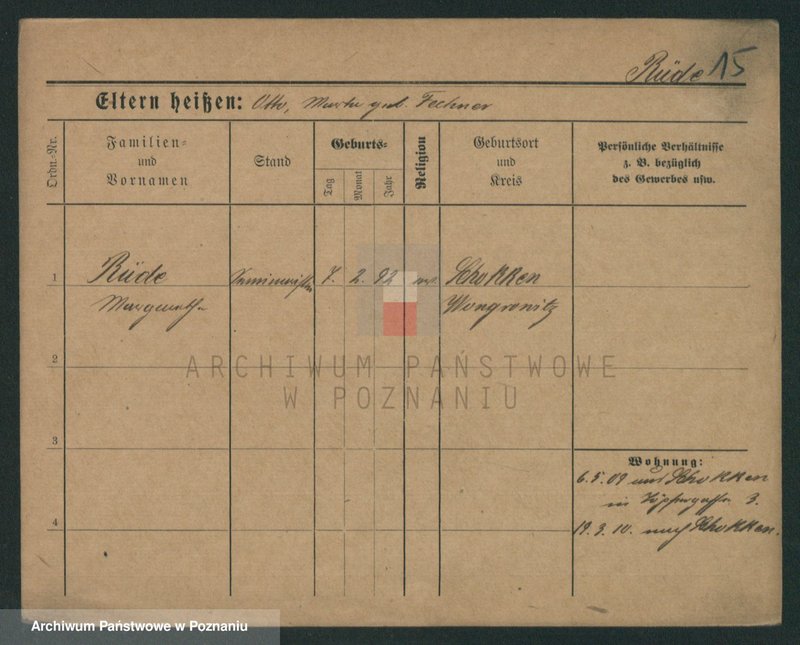 Rüde 15
Eltern heißen: Otto, Martha geb. Fechner
Ordn.-Nr.
Familien-
und
Vornamen
Stand
Geburts-
Tag
Monat
Jahr
Religion
Geburtsort
und
Kreis
Persönliche Verhältnisse
z. B. bezüglich
des Gewerbes usw.
1
Rüde
7. 2. 92
Schokken
Margarethe
Wongrowitz
ARCHIWUM PAŃSTWOWE
W POZNANIU
2
3
4
Wohnung:
6.5.09 Schokken
in 3.
19.3.10. nach Schokken.
Archiwum Państwowe w Poznaniu